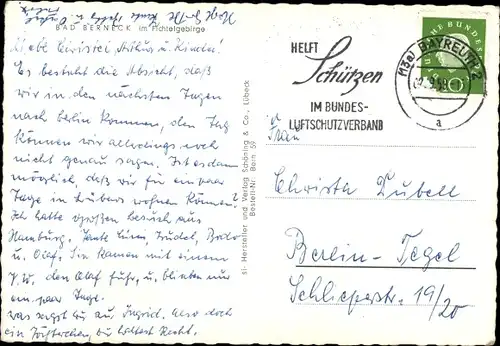 BAD BERNECK im Fichtelgebirge
Liebe Christel Arthur u. Kinder!
Es besteht die Absicht, daß
wir in den nächsten Tagen
nach Berlin kommen, den Tag
können wir allerdings noch
nicht genau sagen. Ist es dann
möglich, daß wir für ein paar
Tage in Lübars wohnen können?
Ich hatte großen Besuch aus
Hamburg. Tante Lissi, Trudel, Bodo
u. Olaf. Sie kamen mit einem
V.W. den Olaf fuhr, u. blieben nur
ein paar Tage.
was sagst du zu Ingrid. Also doch
ein Töchterchen, du hattest Recht.
sl- Hersteller und Verlag Schöning & Co., Lübeck
Bestell-Nr.: Bern 59
HELFT
Schützen
IM BUNDES-
LUFTSCHUTZVERBAND
(13a) BAYREUTH 2
a
DEUTSCHE BUNDESPOST
10
Frau
Christa Lubell
Berlin-Tegel
Schlieperstr. 19/20